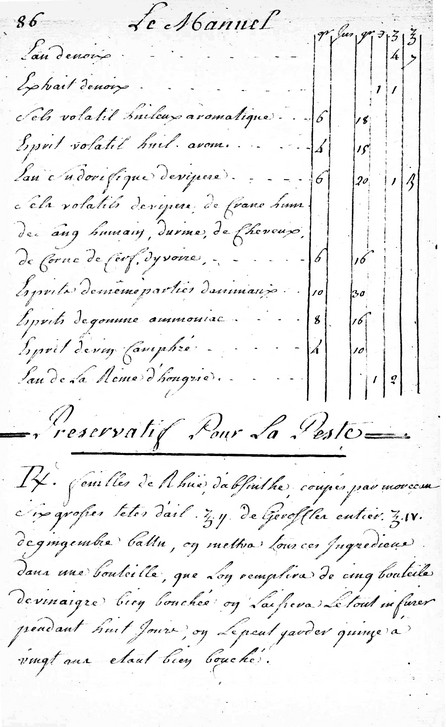 86 Le Manuel
gr. Jus gr. ʒ ℥ ℥
Eau de noix 4 7
Extrait de noix 1 1
Sels volatil huileux aromatique 6 18
Esprit volatil huil. arom. 4 15
Eau Sudorifique de vipere 6 20 1
Sels volatils de vipere, de Crane hum.
de Sang humain, durine, de Cheveux,
de Corne de Cerf, dyvoire, 6 16
Esprits de même parties d'animaux 10 30
Esprits de gomme ammoniac 8 16
Esprit de vin Camphré 4 10
Eau de La Reine d'hongrie 1 2
Preservatif Pour La Peste
℞. feuilles de Rhüe, d'absinthe coupés par morceau
Six grosses tetes d'ail ℥ ij. de Geroffles entier ℥. iv.
de gingembre battu, on mettra tous ces Ingrediens
dans une bouteille, que Lon remplira de cinq bouteille
de vinaigre bien bouchée on Laissera Le tout infuser
pendant huit Jours, on Le peut garder quinze à
vingt ans etant bien bouché.